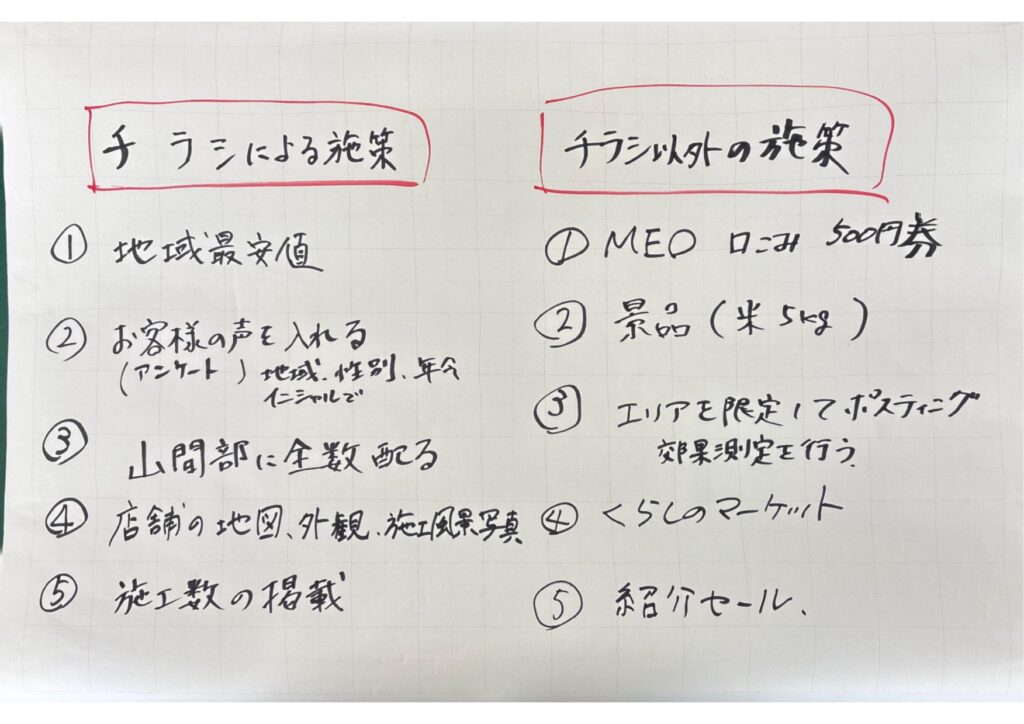 チラシによる施策
① 地域最安値
② お客様の声を入れる
(アンケート) 地域、性別、年令
イニシャルで
③ 山間部に全数配る
④ 店舗の地図、外観、施工風景写真
⑤ 施工数の掲載
チラシ以外の施策
① MEO 口こみ 500円券
② 景品(米5kg)
③ エリアを限定してポスティング
効果測定を行う。
④ くらしのマーケット
⑤ 紹介セール、